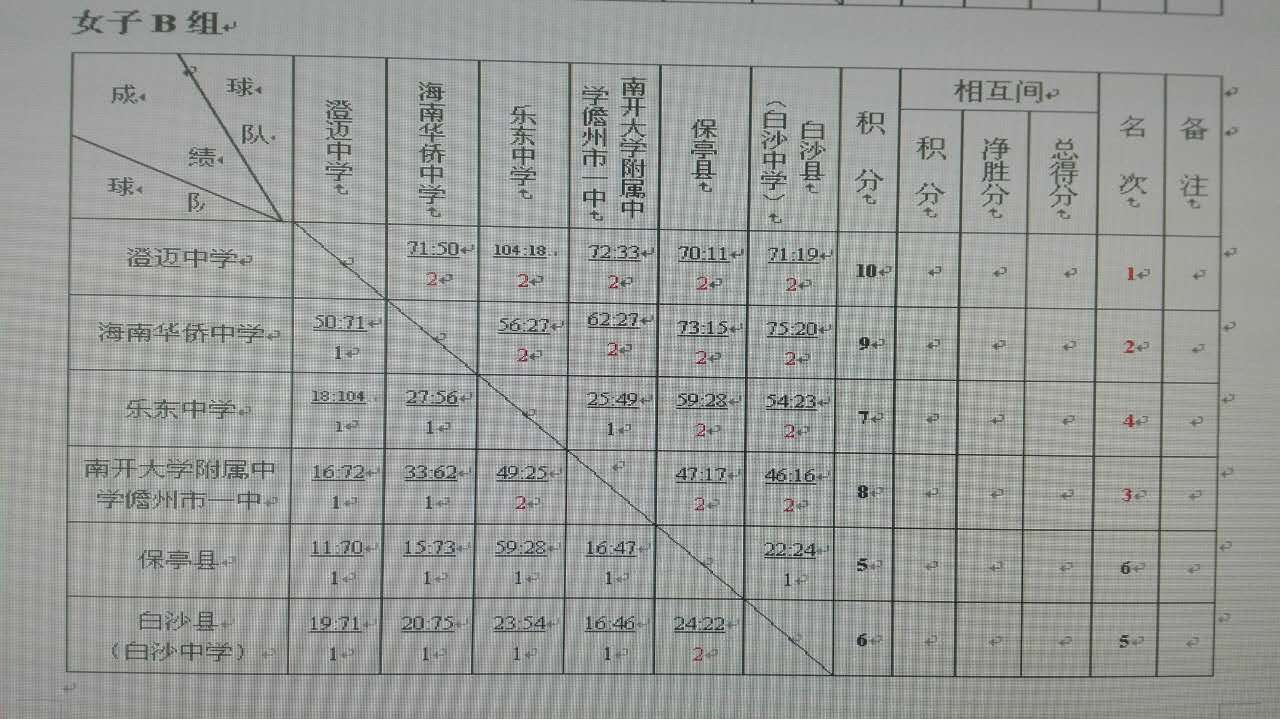 女子B组
成 绩
球 队
球 队
澄迈中学
海南华侨中学
乐东中学
南开大学附属中
学儋州市一中
保亭县
白沙县
（白沙中学）
积分
相互间
积分
净胜分
总得分
名次
备注
澄迈中学 71:50 104:18 72:33 70:11 71:19 10 1
2 2 2 2 2
海南华侨中学 50:71 56:27 62:27 73:15 75:20 9 2
1 2 2 2 2
乐东中学 18:104 27:56 25:49 59:28 54:23 7 4
1 1 1 2 2
南开大学附属中
学儋州市一中 16:72 33:62 49:25 47:17 46:16 8 3
1 1 2 2 2
保亭县 11:70 15:73 59:28 16:47 22:24 5 6
1 1 1 1 1
白沙县
（白沙中学） 19:71 20:75 23:54 16:46 24:22 6 5
1 1 1 1 2